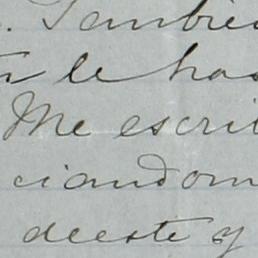 . Tambié
le has
Me escri
ciandom
deeste y